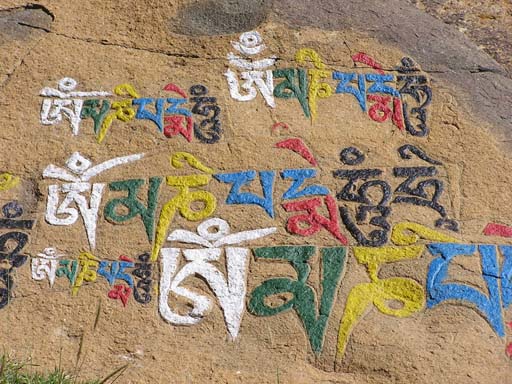 ཨོཾ མ ཎི པ དྨེ ཧཱུྃ
ཨོཾ མ ཎི པ དྨེ ཧཱུྃ
ཨོཾ མ ཎི པ དྨེ ཧཱུྃ ཧྲཱི
ཨོཾ མ ཎི པ དྨེ ཧཱུྃ
ཨོཾ མ ཎི པ